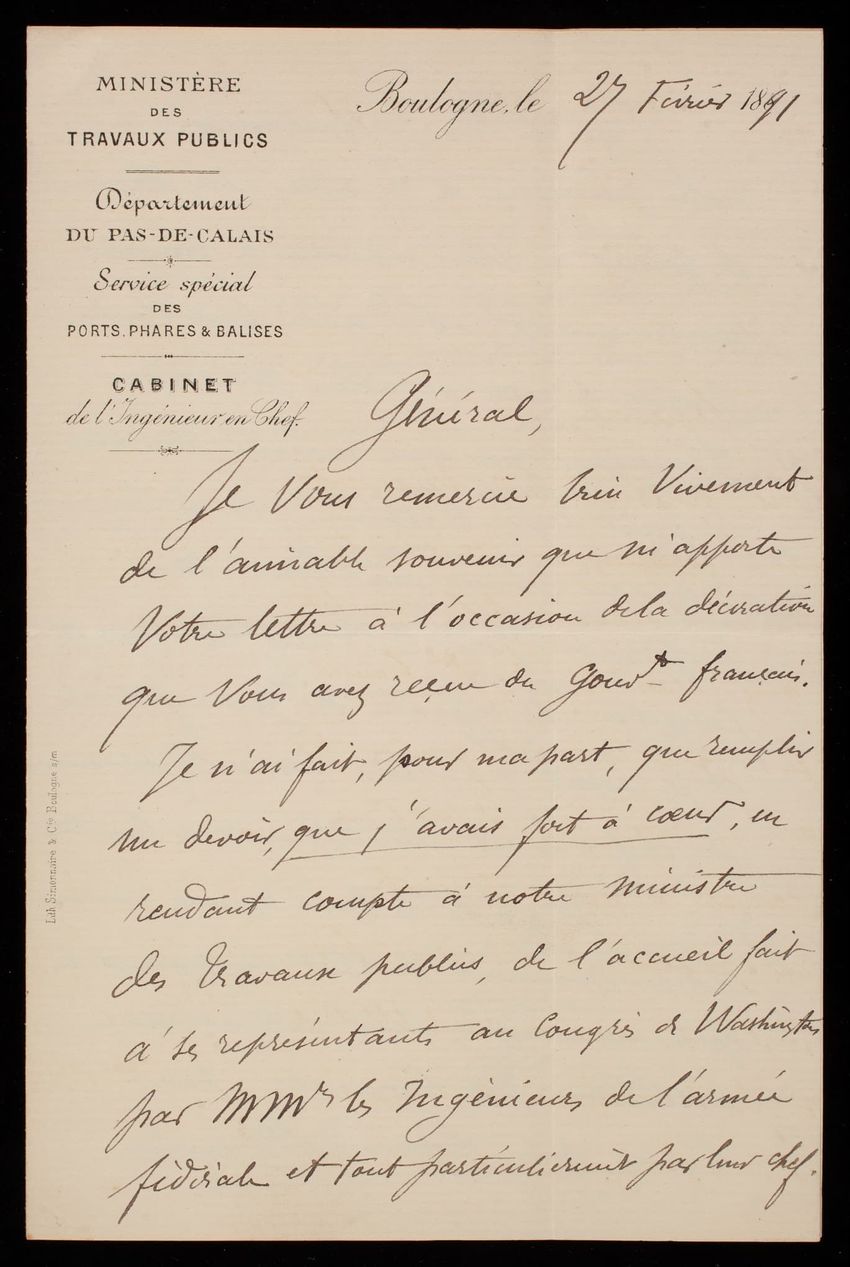 MINISTÈRE
DES
TRAVAUX PUBLICS
Département
DU PAS-DE-CALAIS
Service spécial
DES
PORTS, PHARES & BALISES
CABINET
de l'Ingénieur en Chef.
Boulogne, le 27 Février 1891
Général,
Je Vous remercie bien Vivement
de l'aimable souvenir que m'apporte
Votre lettre à l'occasion de la décoration
que Vous avez reçue du Gouvt français.
Je n'ai fait, pour ma part, que remplir
un devoir, que j'avais fort à cœur, en
rendant compte à notre Ministre
des Travaux publics, de l'accueil fait
à ses représentants au Congrès de Washington
par MMrs les Ingénieurs de l'armée
fédérale et tout particulièrement par leur chef.
Lith Simonnaire & Cie Boulogne s/m